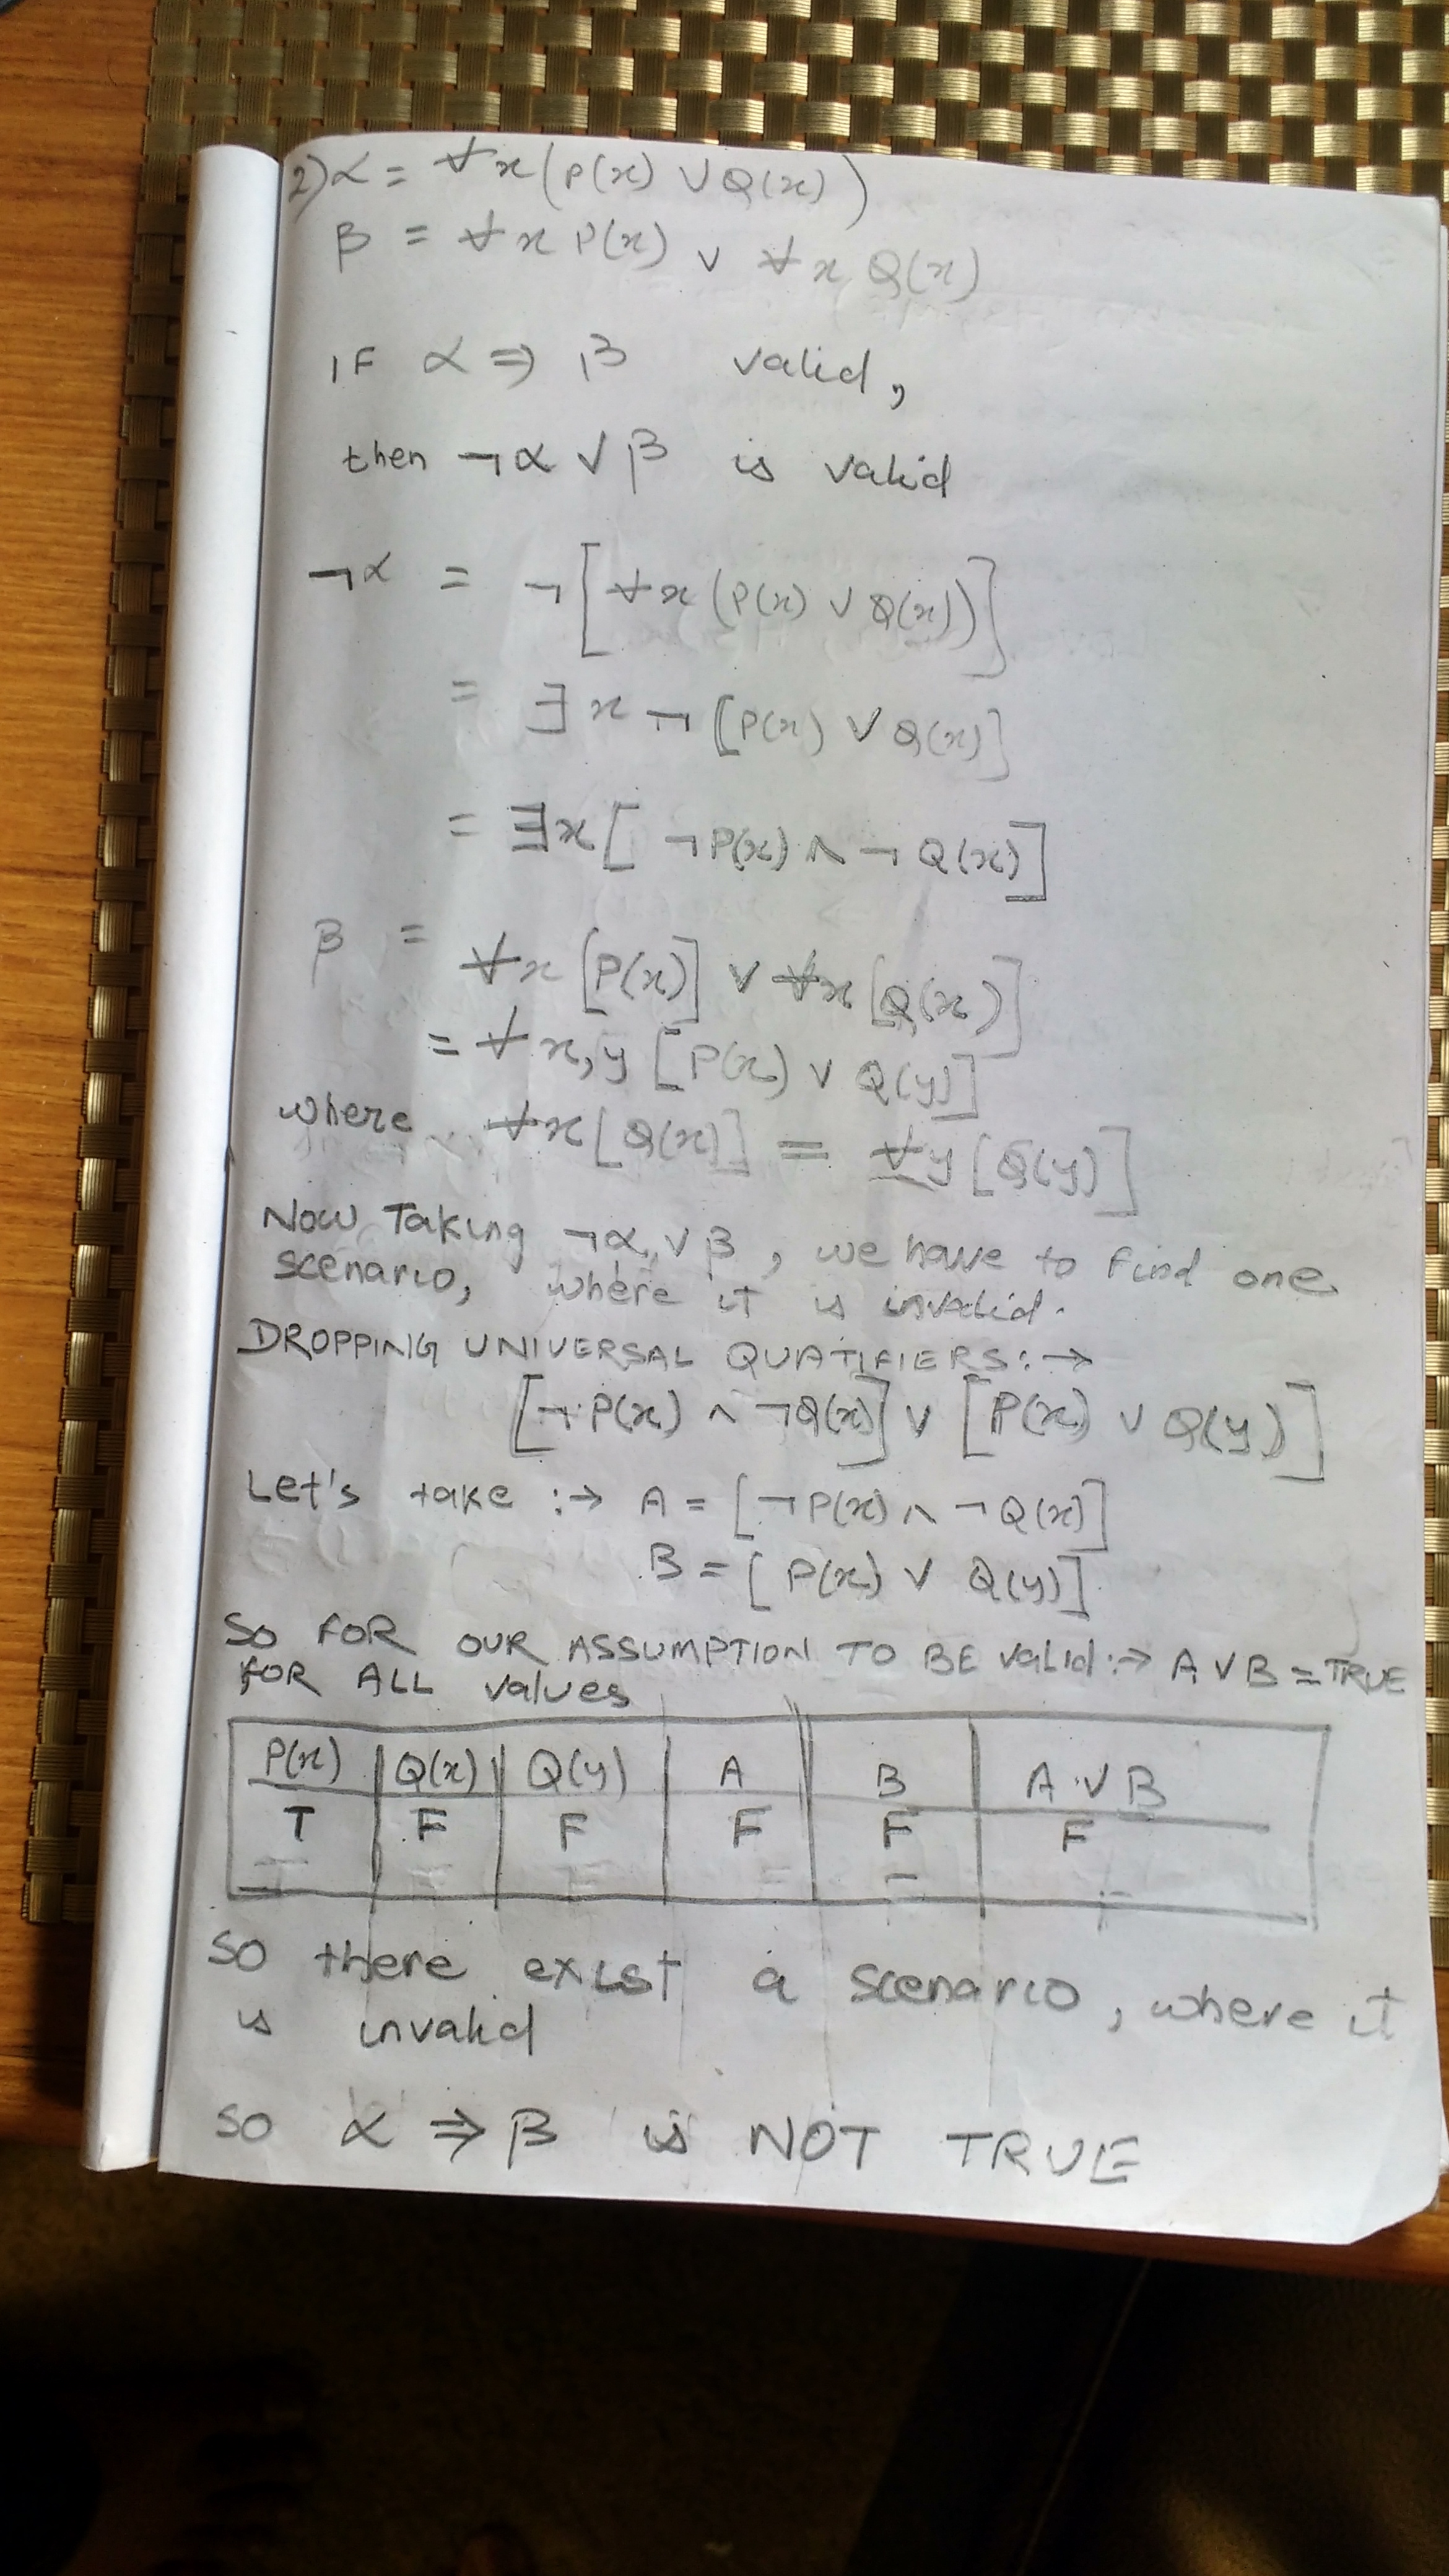 2) α = ∀x(P(x) ∨ Q(x))
β = ∀x P(x) ∨ ∀x Q(x)
IF α ⇒ β valid,
then ¬α ∨ β is valid
¬α = ¬[∀x (P(x) ∨ Q(x))]
= ∃x ¬ [P(x) ∨ Q(x)]
= ∃x [ ¬P(x) ∧ ¬Q(x)]
β = ∀x [P(x)] ∨ ∀x [Q(x)]
= ∀x,y [P(x) ∨ Q(y)]
where ∀x[Q(x)] = ∀y[Q(y)]
Now Taking ¬α ∨ β, we have to find one
scenario, where it is invalid.
DROPPING UNIVERSAL QUATIFIERS:→
[¬P(x) ∧ ¬Q(x)] ∨ [P(x) ∨ Q(y)]
Let's take :→ A = [¬P(x) ∧ ¬Q(x)]
B = [P(x) ∨ Q(y)]
SO FOR OUR ASSUMPTION TO BE valid:→ A ∨ B = TRUE
FOR ALL values
P(x) Q(x) Q(y) A B A ∨ B
T F F F F F
SO there exist a scenario, where it
is invalid
SO α ⇒ β is NOT TRUE